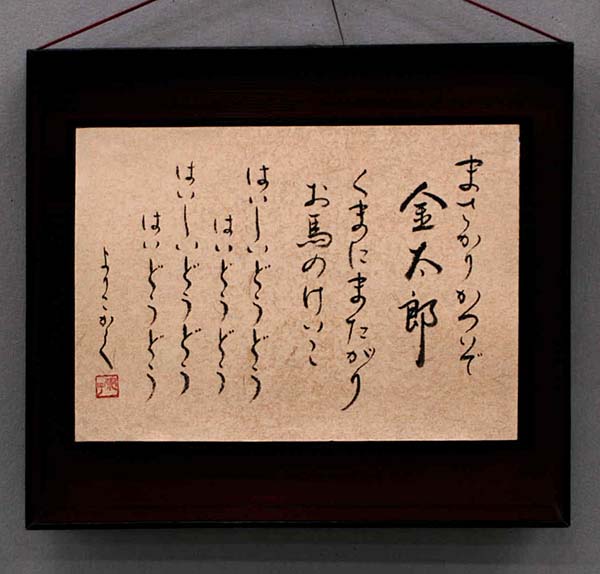 まさかりかついで
金太郎
くまにまたがり
お馬のけいこ
はいしいどうどう
はいどうどう
はいしいどうどう
はいどうどう
よりこかく